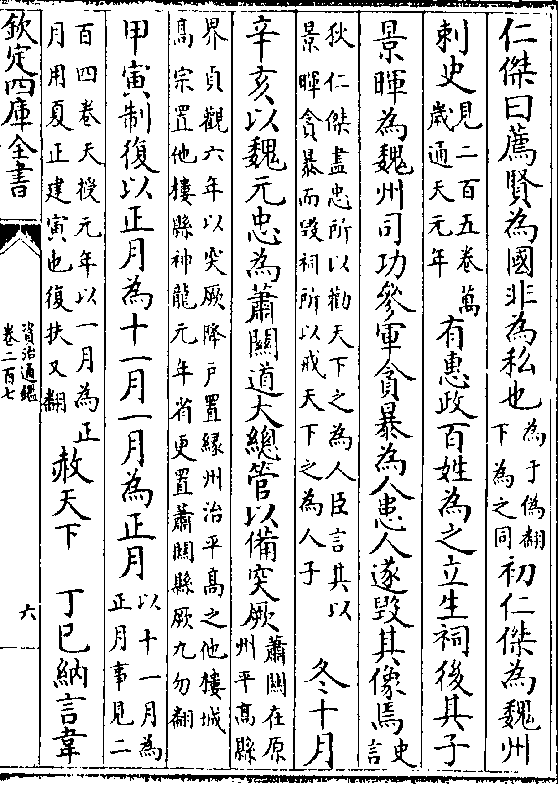 仁傑曰薦賢為國非為私也為于偽翻下為之同初仁傑為魏州
刺史見二百五卷萬歲通天元年有惠政百姓為之立生祠後其子
景暉為魏州司功參軍貪暴為人患人遂毀其像焉史言
狄仁傑盡忠所以勸天下之為人臣言其以景暉貪暴而毀祠所以戒天下之為人子冬十月
辛亥以魏元忠為蕭關道大總管以備突厥蕭關在原州平高縣
界貞觀六年以突厥降戶置緣州治平高之他樓城高宗置他樓縣神龍元年省更置蕭關縣厥九勿翻
甲寅制復以正月為十一月一月為正月以十一月為正月事見二
百四卷天授元年以一月為正月用夏正建寅也復扶又翻赦天下 丁巳納言韋
欽定四庫全書
資治通鑑
卷二百七
六